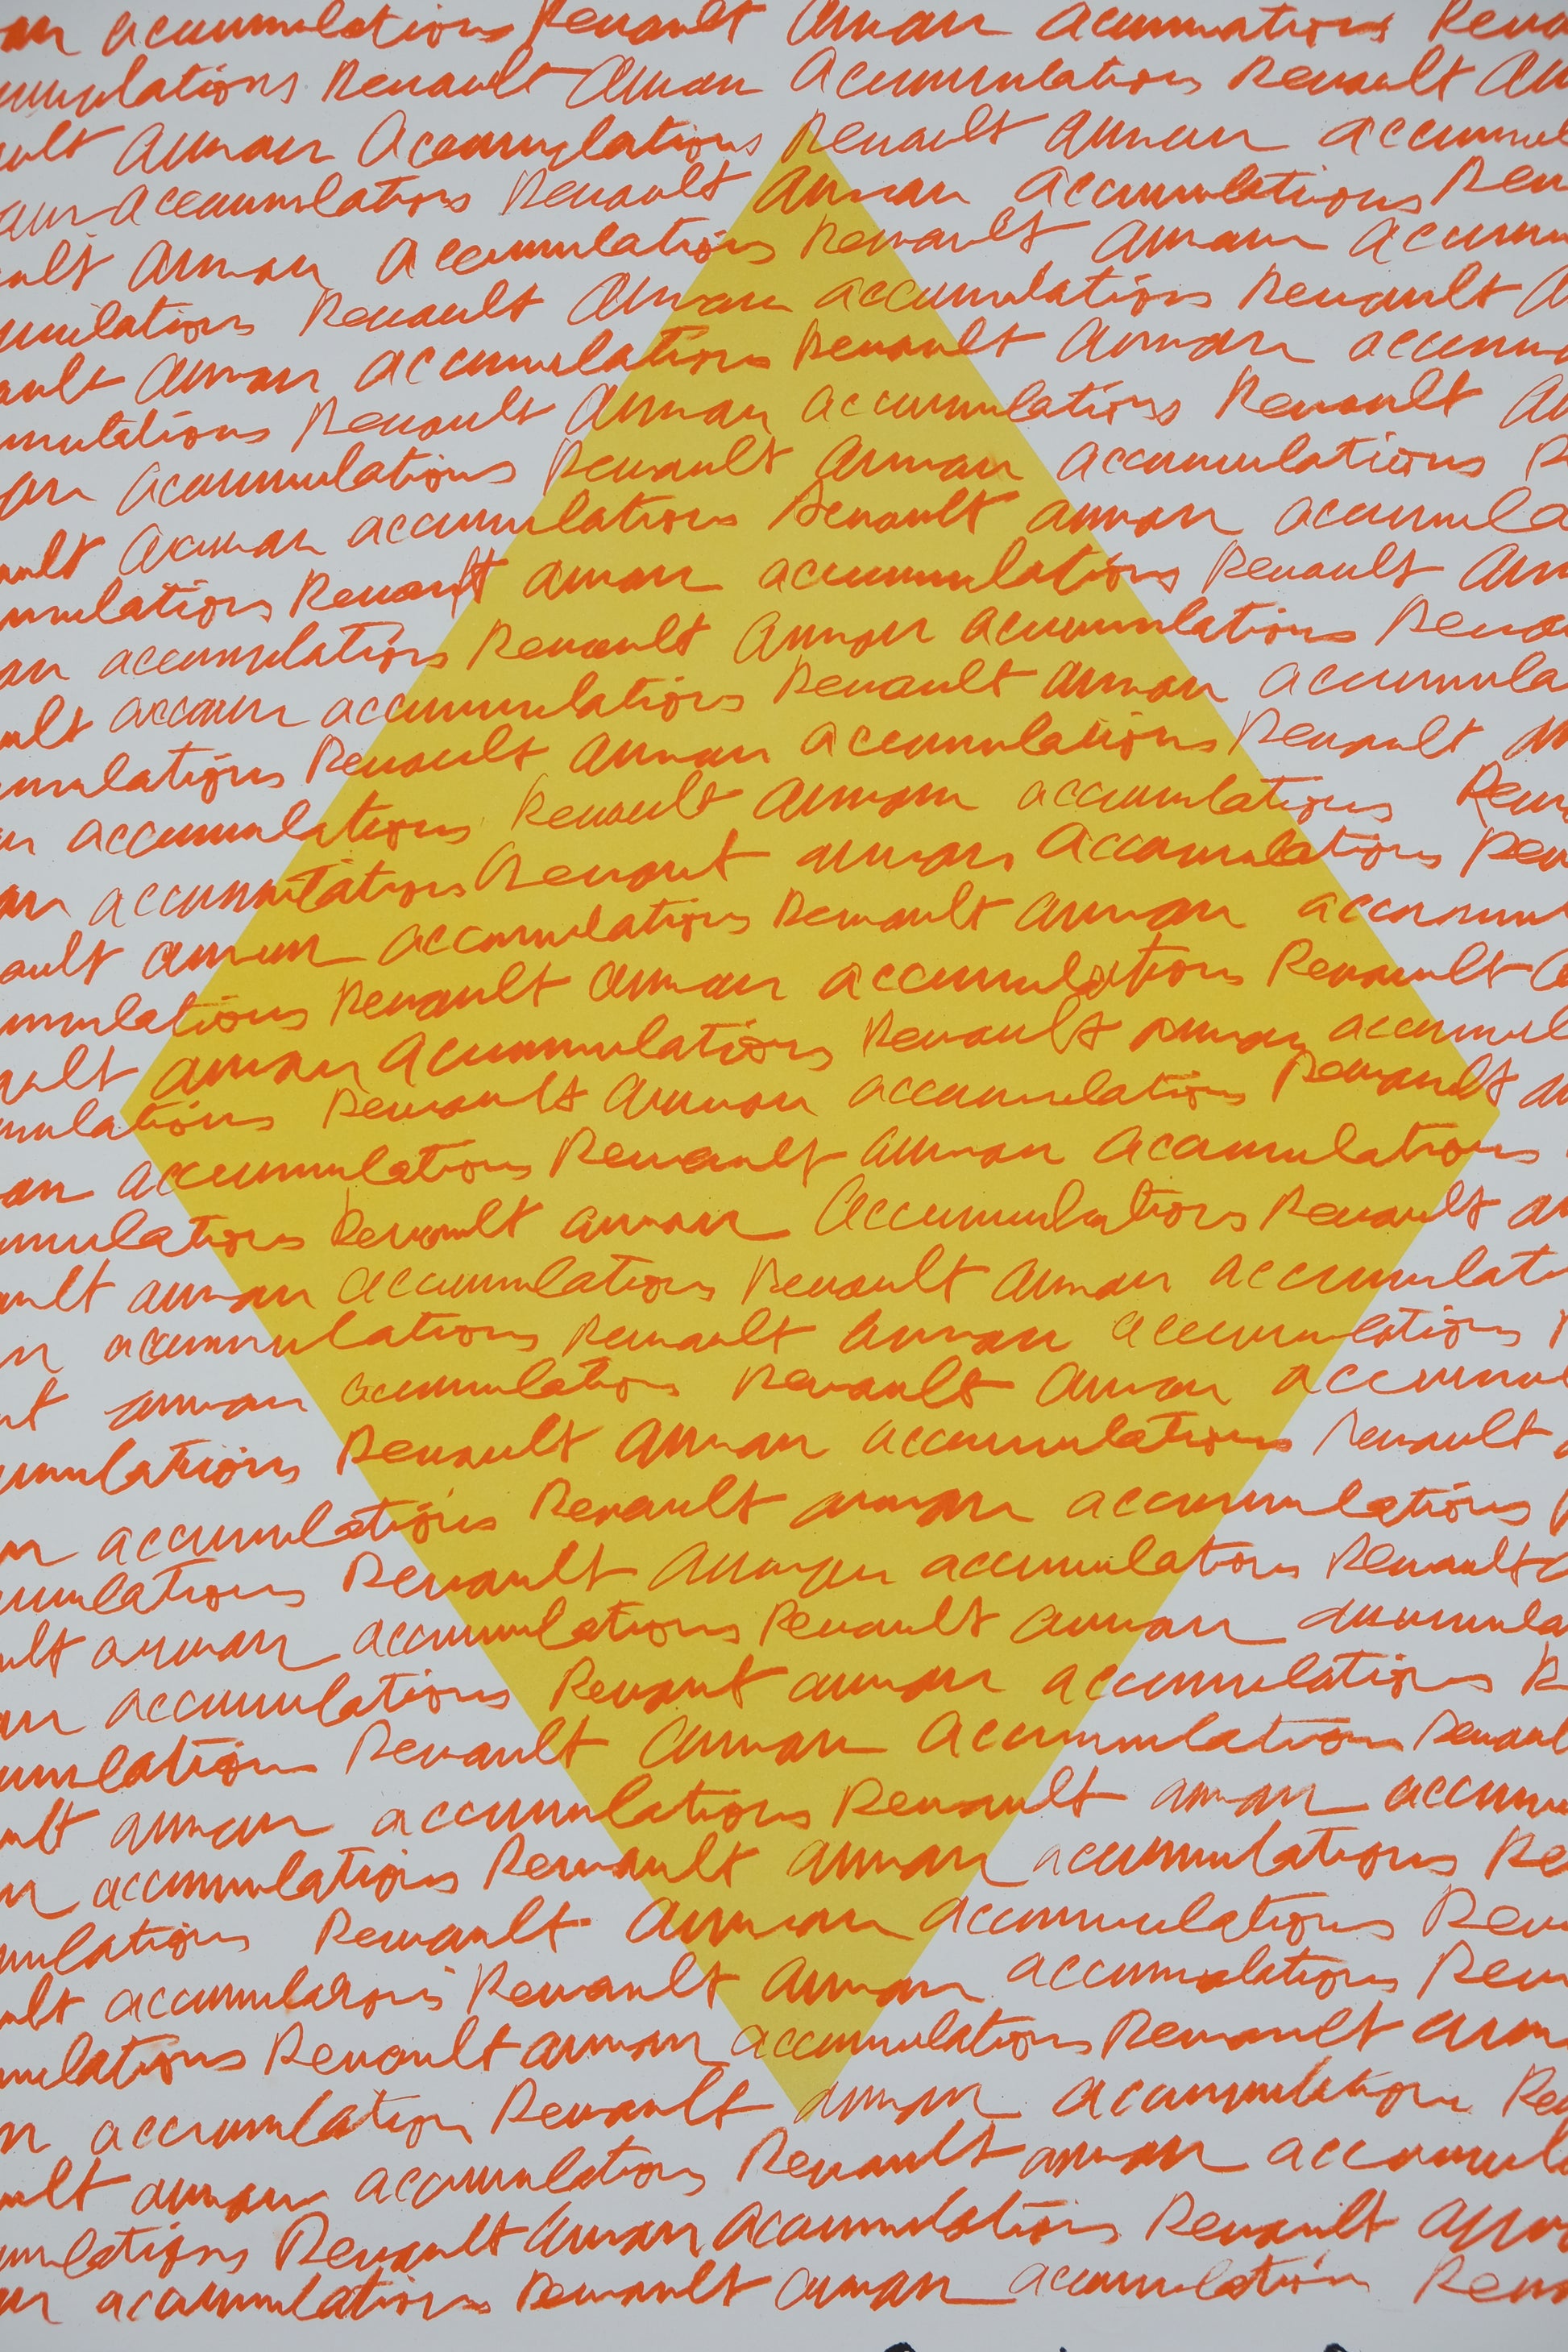 an accumulations Renault Arman accumations Rena
umulations Renault Arman Accumulations Renault Arm
ault Arman Accumulations Renault Arman accumul
am Accumulations Renault Arman accumulations Ren
ult Arman Accumulations Renault Arman Accumu
umulations Renault Arman accumulations Renault A
ault Arman accumulations Renault Arman accumu
mulations Renault Arman accumulations Renault Ar
an accumulations Renault Arman accumulations R
ault Arman accumulations Renault arman accumula
mulations Renault arman accumulations Renault Arm
an accumulations Renault Arman accumulations Rena
ult accam accumulations Renault Arman accumula
mulations Renault Arman accumulations Renault
n accumulations Renault Arman accumulations Ren
an accumulations Renault arman Accumulations Ren
ault arman accumulations Renault arman accumu
mulations Renault arman accumulations Renault a
ault arman accumulations Renault arman accumul
mulations Renault Arman accumulations Renault a
an accumulations Renault arman accumulations
mulations Renault arman Accumulations Renault ar
ault arman accumulations Renault arman accumulati
n accumulations Renault arman accumulations
lt arman accumulations Renault Arman accumul
umulations Renault Arman accumulations Renault
n accumulations Renault arman accumulations
umulations Renault Arman accumulations Renault a
ult arman accumulations Renault arman accumula
an accumulations Renault arman accumulations R
umulations Renault Arman accumulations Renault
ult arman accumulations Renault arman accumu
n accumulations Renault arman accumulations Re
mulations Renault Arman accumulations Ren
ult accumulations Renault Arman accumulations Ren
mulations Renault arman accumulations Renault arm
n accumulations Renault arman accumulations Re
ult arman accumulations Renault arman accumul
mulations Renault Arman accumulations Renault arm
n accumulations Renault arman accumulation Rena